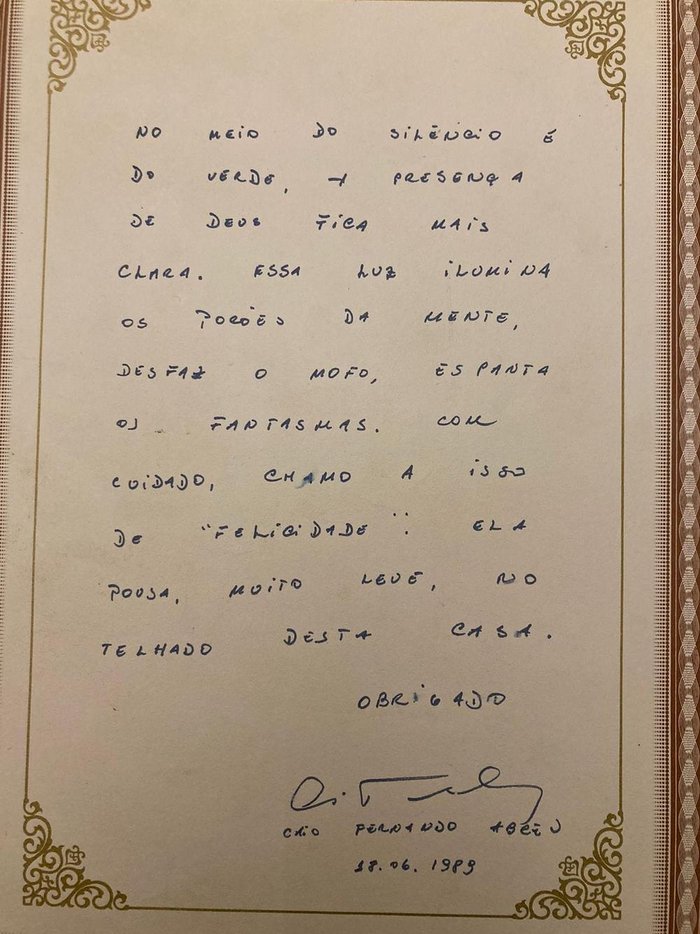 NO MEIO DO SILÊNCIO E
DO VERDE, A PRESENÇA
DE DEUS FICA MAIS
CLARA. ESSA LUZ ILUMINA
OS PORÕES DA MENTE,
DESFAZ O MOFO, ESPANTA
OS FANTASMAS. COM
CUIDADO, CHAMO A ISSO
DE "FELICIDADE": ELA
POUSA, MUITO LEVE, NO
TELHADO DESTA CASA.
OBRIGADO
CAIO FERNANDO ABREU
18.06.1989